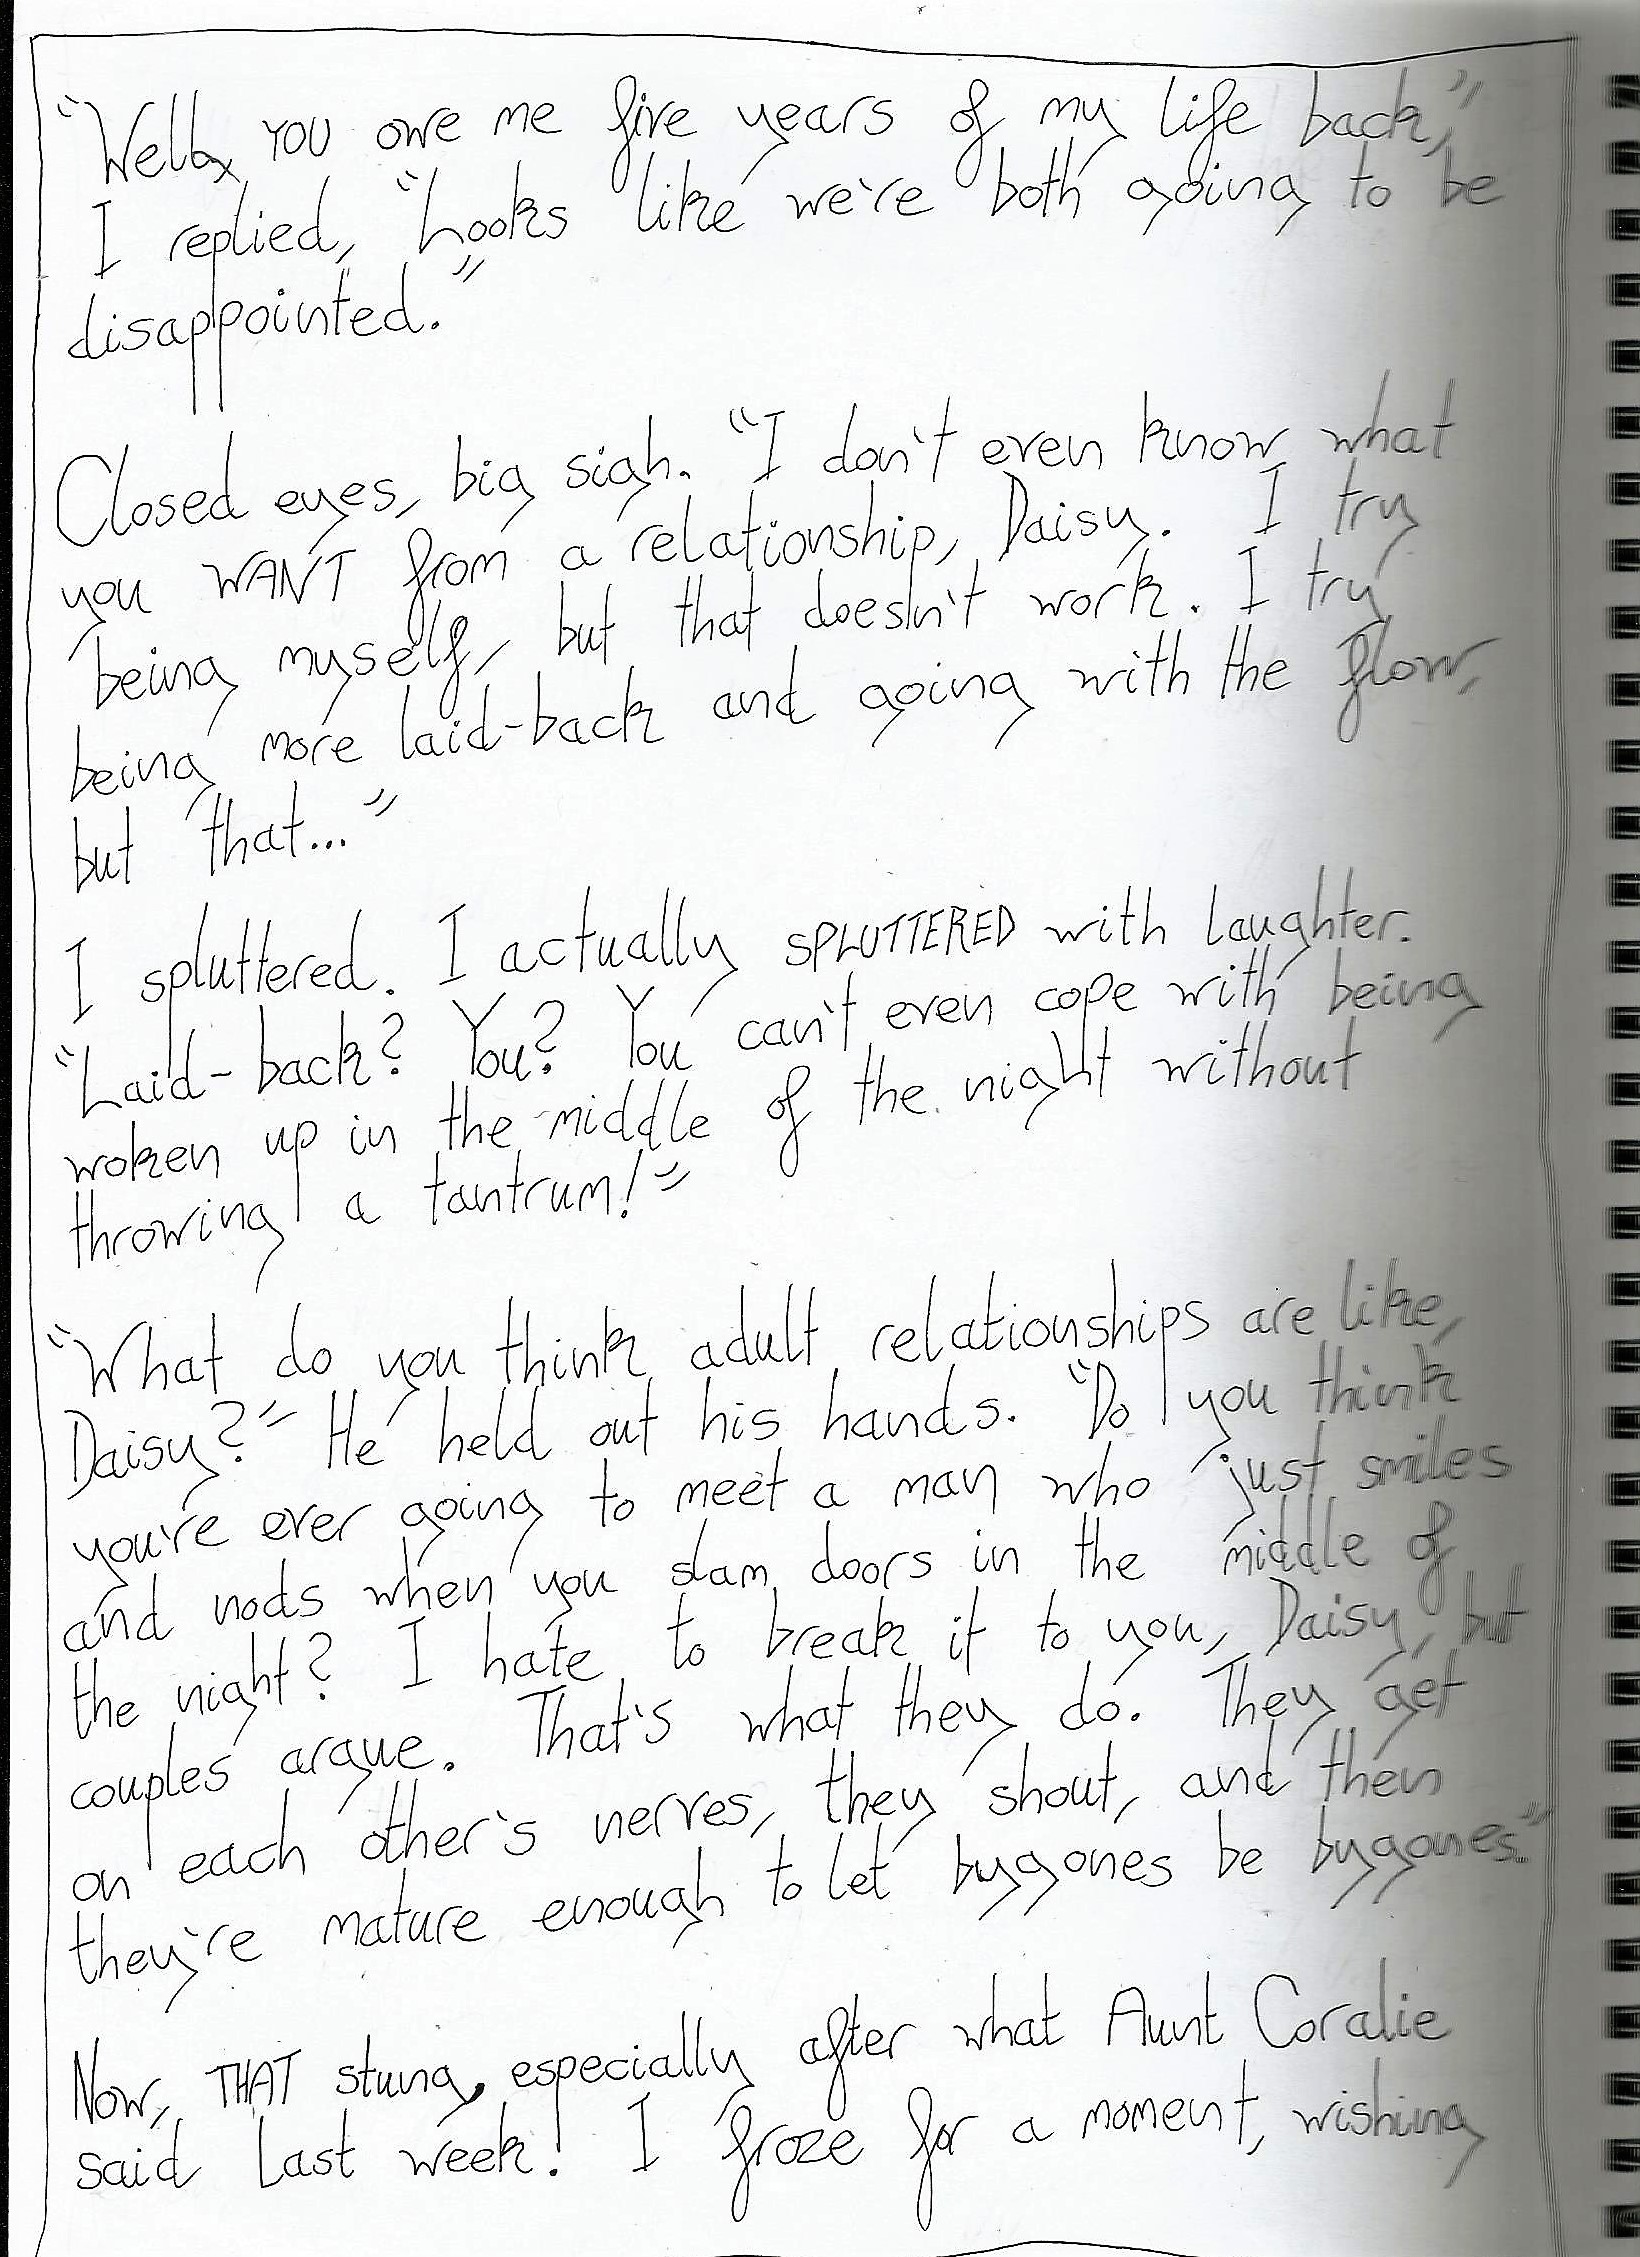 "Well, YOU owe me five years of my life back,"
I replied, "Looks like we're both going to be
disappointed."
Closed eyes, big sigh. "I don't even know what
you WANT from a relationship, Daisy. I try
being myself, but that doesn't work. I try
being more laid-back and going with the flow,
but that..."
I spluttered. I actually SPLUTTERED with laughter.
"Laid-back? You? You can't even cope with being
woken up in the middle of the night without
throwing a tantrum!"
"What do you think adult relationships are like,
Daisy?" He held out his hands. "Do you think
you're ever going to meet a man who just smiles
and nods when you slam doors in the middle of
the night? I hate to break it to you, Daisy, but
couples argue. That's what they do. They get
on each other's nerves, they shout, and then
they're mature enough to let bygones be bygones."
Now, THAT stung, especially after what Aunt Coralie
said last week! I froze for a moment, wishing